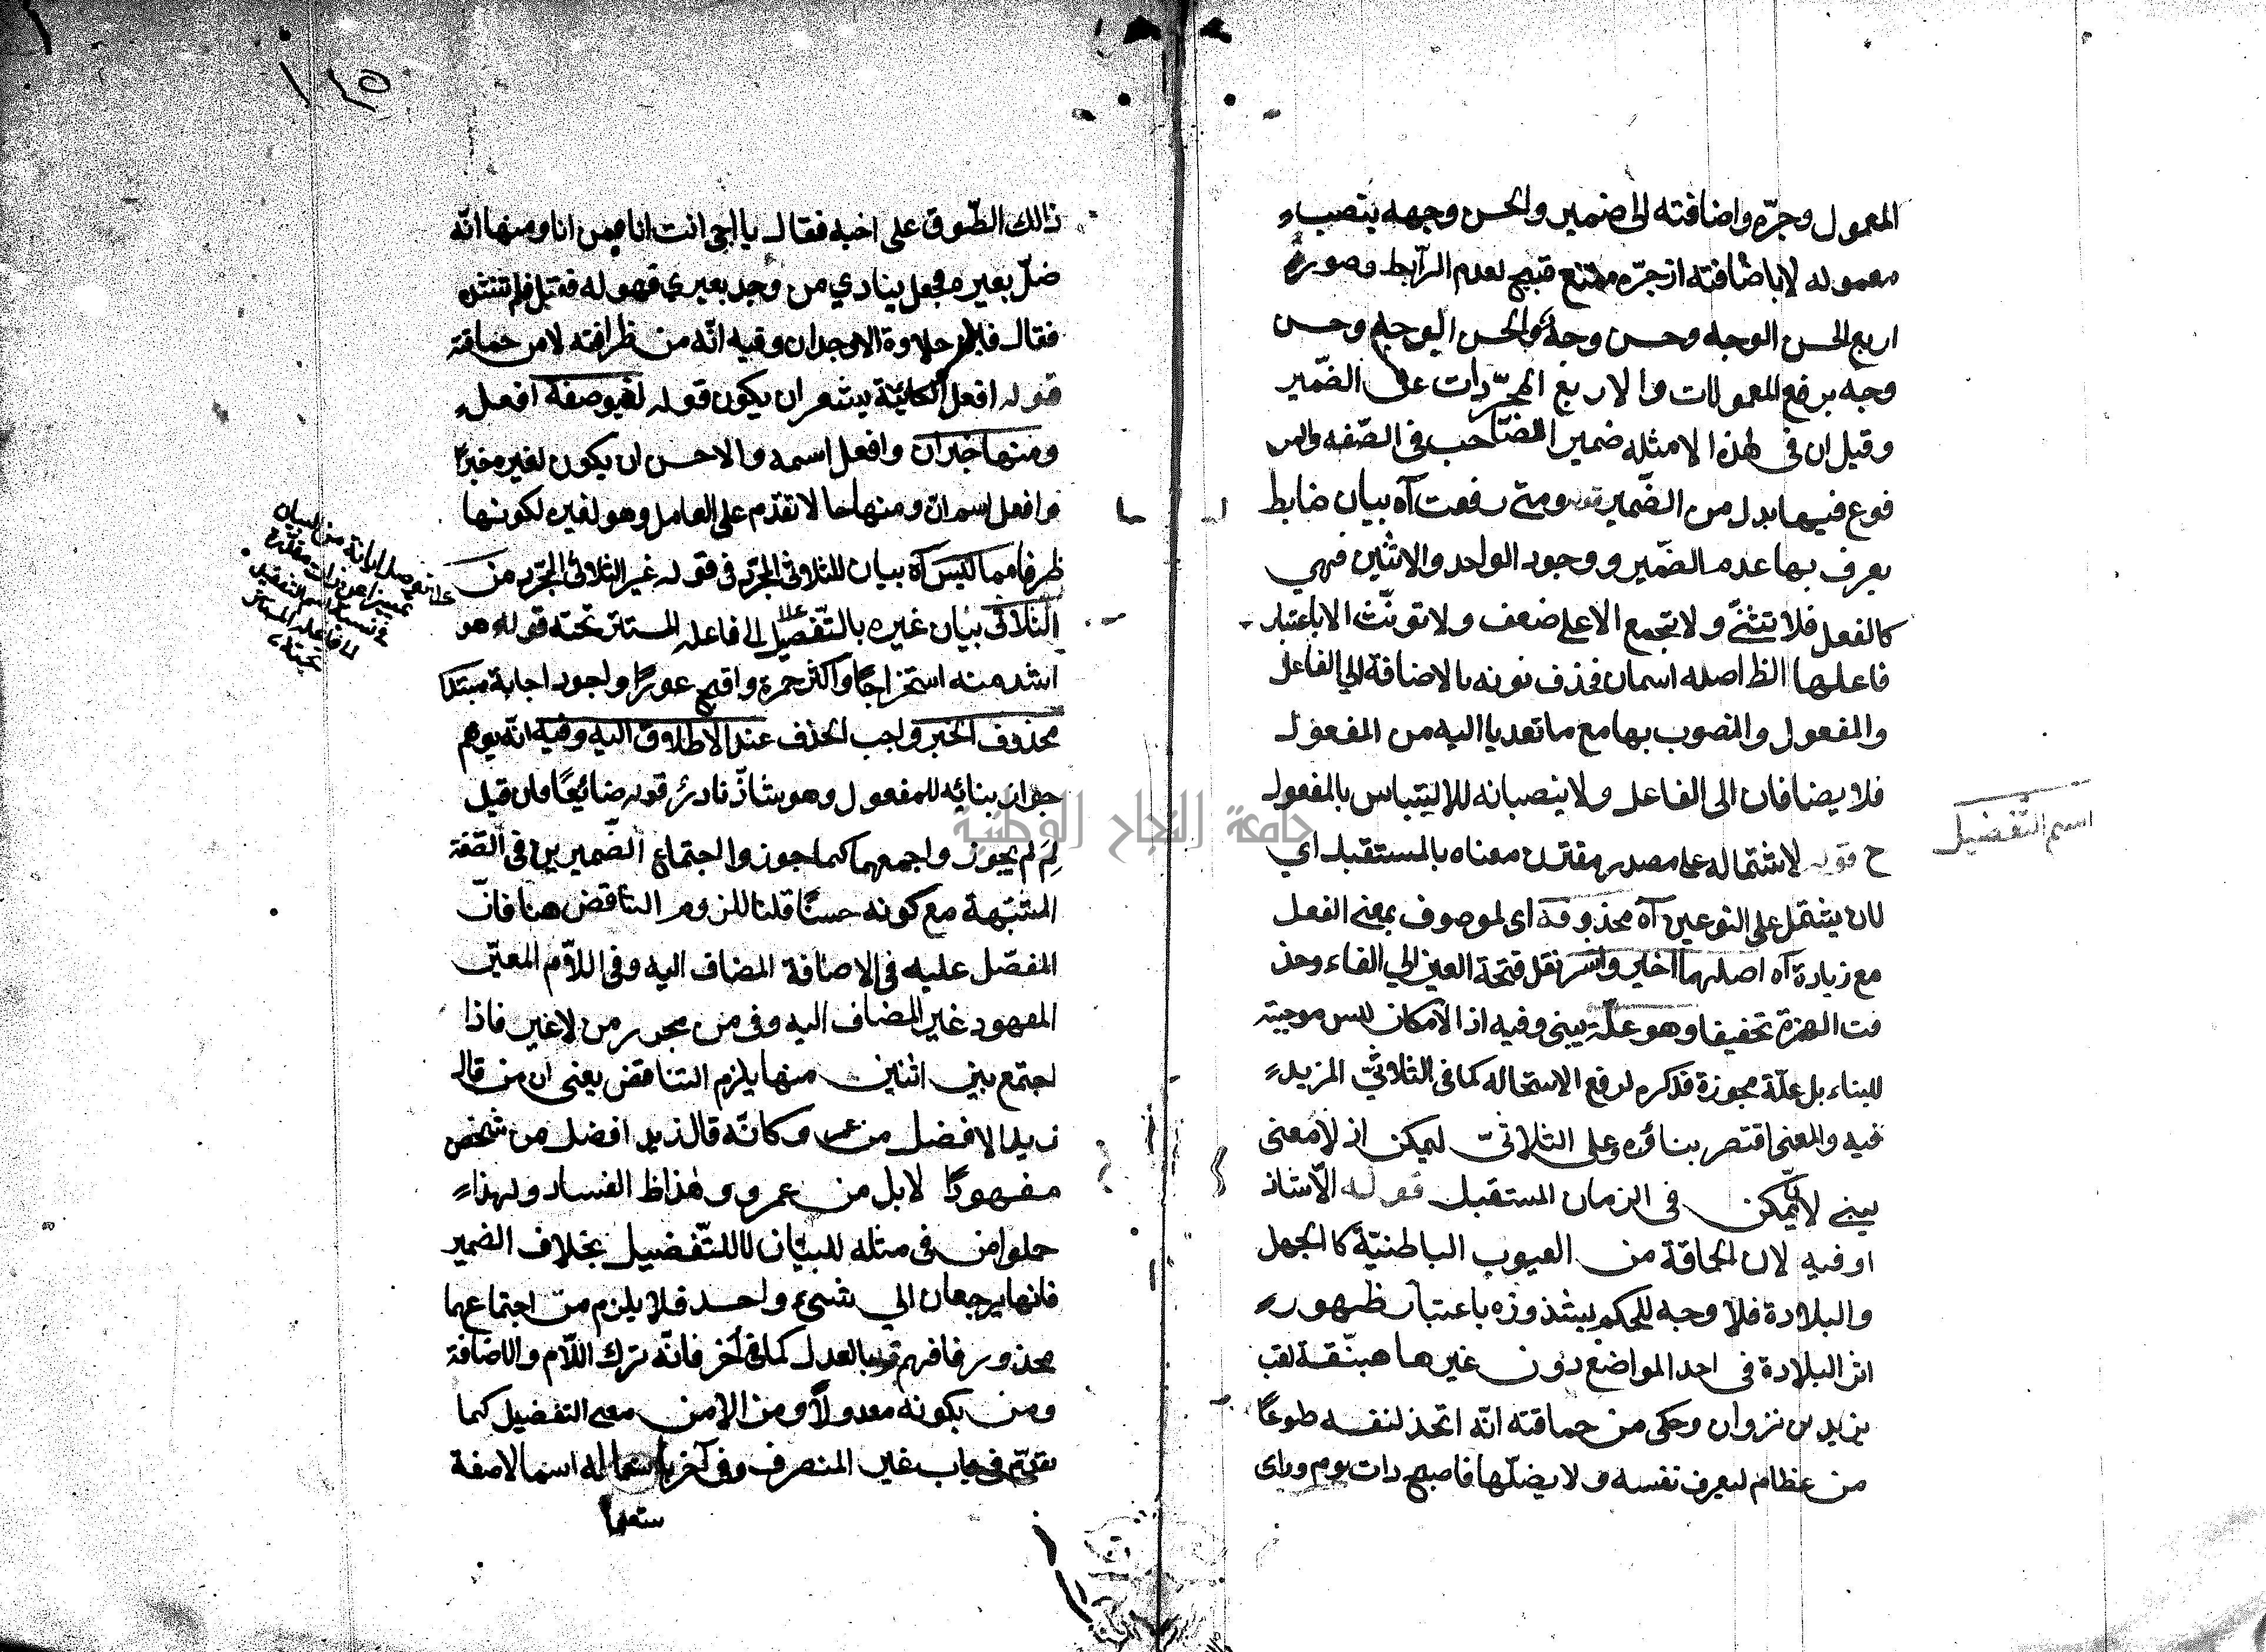 المعمول وجرّه واضافته الى ضمير والحسن وجهه بنصب
معموله لا باضافته اذ جرّه ممتنع قبيح لعدم الرّابط وصورة
اربع الحسن الوجه وحسن وجه والحسن الوجه وحسن
وجه برفع المعمولات والاربع المجرّدات على الضّمير
وقيل ان فى هذا الامثله ضمير الصّاحب فى الصّفه والمر
فوع فيها بدل من الضّمير قوله ومتى رفعت آه بيان ضابط
يعرف بها عدم الضّمير ووجود الواحد والاثنين فهي
كالفعل فلا تثنّى ولا تجمع الا على ضعف ولا تونّث الا باعتبار
فاعلها الظ اصله اسمان فحذف نونه بالاضافة الي الفاعل
والمفعول والمنصوب بها مع ما تعديا اليه من المفعول
فلا يضافان الى الفاعل ولا ينصبانه للالتباس بالمفعول
ح قوله لاشتماله على مصدر مقترن معناه بالمستقبل اي
لان يشتمل على النوعين آه محذوفه اى لموصوف بمعنى الفعل
مع زيادة آه اصلهما اخير واشر نقل فتحة العين الي الفاء وحذ
فت الهمزة تخفيفا وهو علّة يبنى وفيه اذا الامكان ليس موجبة
للبناء بل علّة مجوزة فذكره لدفع الاستحاله كما فى الثلاثيّ المزيد
فيه والمعنى اقتصر بناؤه على الثلاثيّ ليمكن اذ لا معنى
يبنى لا يمكن فى الزمان المستقبل قوله الاستاذ
او فيه لان الحماقة من العيوب الباطنيّة كالجهل
والبلادة فلا وجه للحكم بشذوذه باعتبار ظهور
اثر البلادة فى احد المواضع دون غيرها هبنّقة لقب
يزيد بن نزوان وحكى من حماقته انّه اتخذ لنفسه طوعًا
من عظام ليعرف نفسه ولا يضلّها فاصبح ذات يوم وراى
اسم التّفضيل
١٤٥
ذالك الطّوق على اخيه فقال يا اخي انت انا فمن انا ومنها انّه
ضلّ بعيره فجعل ينادي من وجد بعيري فهو له فقيل فلم تنشده
فقال فاين حلاوة الوجدان وفيه انّه من ظرافته لا من حماقة
قوله افعل الكائنة يشعر ان يكون قوله لغيره صفة افعل
ومنها خبر ان وافعل اسمه والاحسن ان يكون لغيره خبرًا
وافعل اسم ان ومنها حالا تقدّم على العامل وهو لغيره لكونها
ظرفا مما ليس آه بيان للثلاثى المجرّد فى قوله غير الثلاثى المجرّد من
الثلاثى بيان غيره بالتّفصيل الى فاعله المستتر تحته قوله هو
اشد منه استخراجًا واكثر حمرة واقبح عورًا واجود اجابة مبتدا
محذوف الخبر واجب الحذف عند الاطلاق اليه وفيه انّه يوهم
جواز بنائه للمفعول وهو شاذّ نادر قوله ضائعًا فان قيل
لِمَ لم يجوز واجمعهما كما جوز والجتماع الضّميرين فى الصّفة
المشبّهة مع كونه حسنًا قلنا للزوم التناقض هنا فانّ
المفضّل عليه فى الاضافة المضاف اليه وفى اللّام المعيّن
المعهود غير المضاف اليه وفى من مجرور من لا غير فاذا
اجتمع بين اثنين منها يلزم التناقض يعنى ان من قال
زيد الافضل من عمرو كانّه قال زيد افضل من شخص
مفهودًا لا بل من عمرو وهذا ظ الفساد ولهذا
حملوا من فى مثله للبيان لا للتّفضيل بخلاف الضمير
فانها يرجعان الي شيء واحد فلا يلزم من اجتماعهما
محذور فافهم قوله بالعدل كما فى آخر فانّه ترك اللّام والاضافة
ومن بكونه معدولًا ومن الامن معنى التفضيل كما
تقدّم فى باب غير المنصرف وفى آخر باستعماله اسما لا صفة